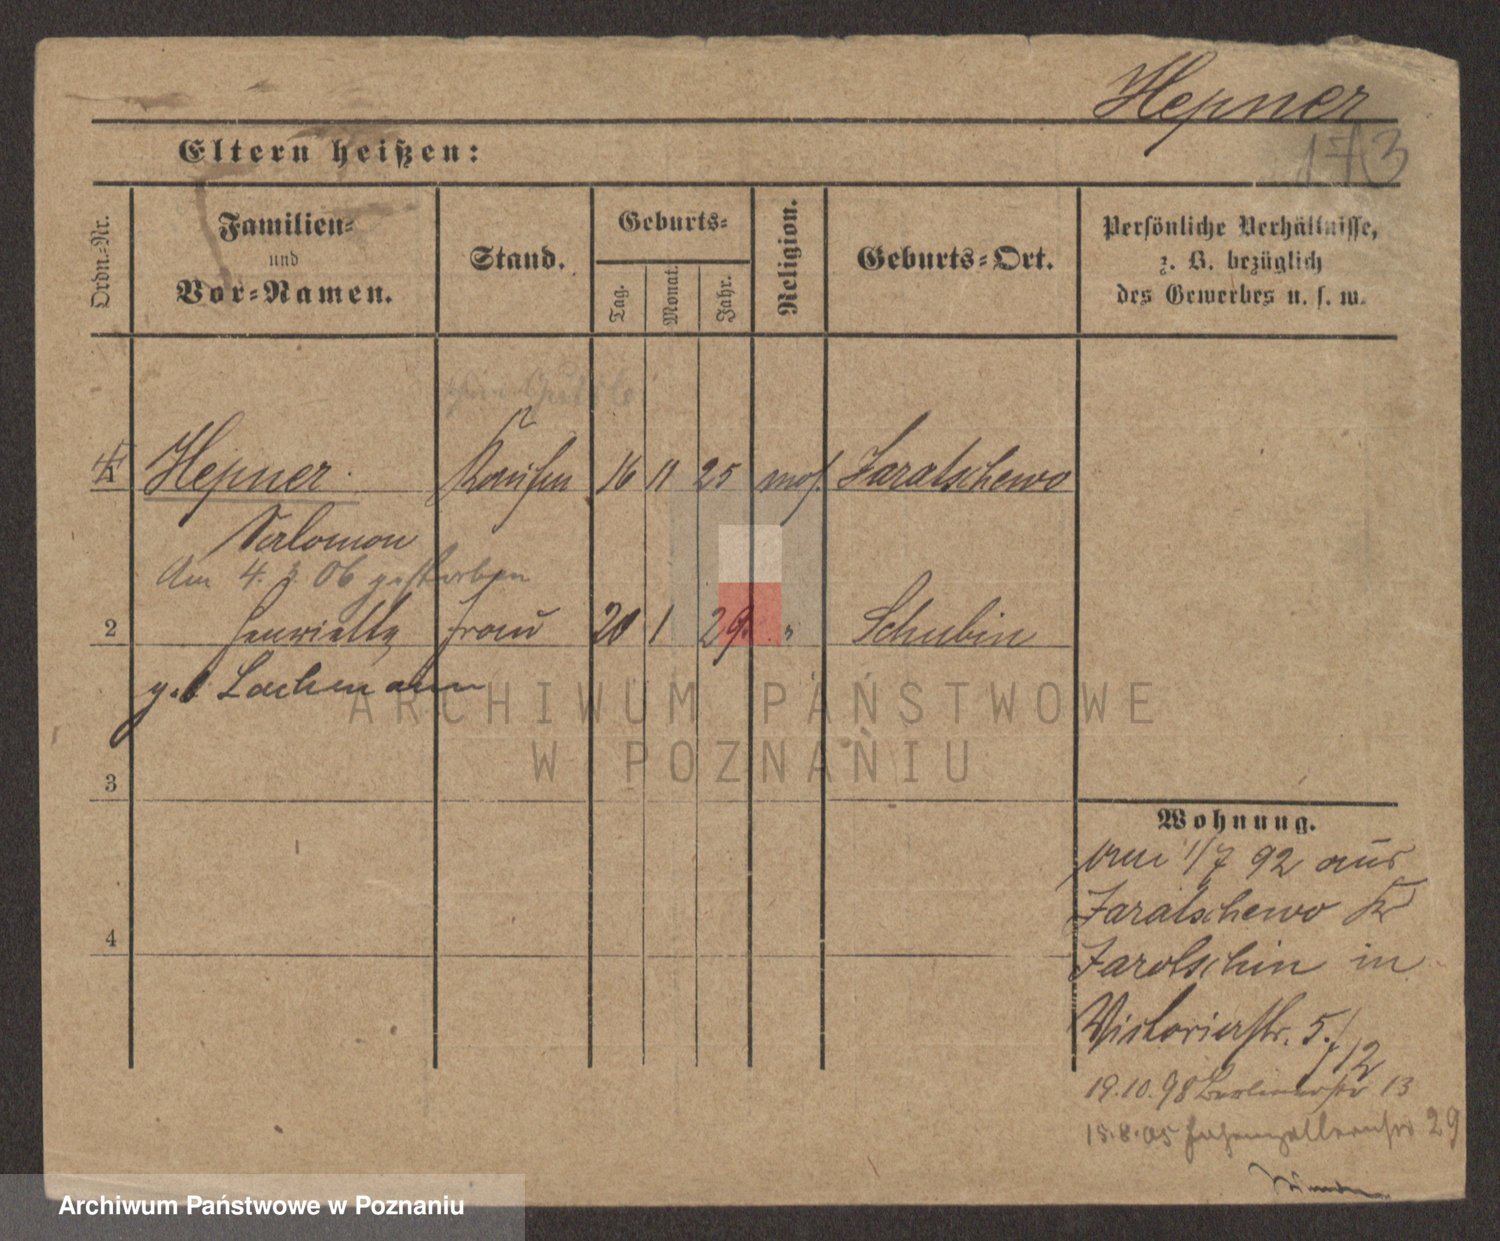 Hepner
173
Eltern heißen:
Ordn.-Nr.
Familien-
und
Vor-Namen.
Stand.
Geburts-
Tag.
Monat.
Jahr.
Religion.
Geburts-Ort.
Persönliche Verhältnisse,
z. B. bezüglich
des Gewerbes u. s. w.
1 Hepner Kaufm 16 11 25 mos. Jaratschewo
Salomon
Am 4. 3. 06 gestorben
2 Henriette Frau 20 1 29 " Schubin
geb Lachmann
ARCHIWUM PAŃSTWOWE
W POZNANIU
3
4
Wohnung.
1/7 92 aus
Jaratschewo Kr
Jarotschin in
Victoriastr. 5./12
19.10.98 Berlinerstr 13
15.8.05 Hohenzollernstr 29
Archiwum Państwowe w Poznaniu